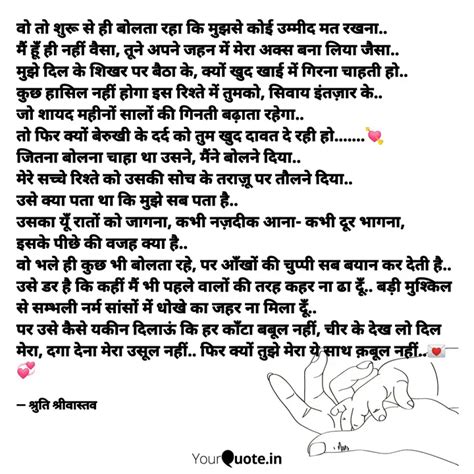 वो तो शुरू से ही बोलता रहा कि मुझसे कोई उम्मीद मत रखना..
मैं हूँ ही नहीं वैसा, तूने अपने जहन में मेरा अक्स बना लिया जैसा..
मुझे दिल के शिखर पर बैठा के, क्यों खुद खाई में गिरना चाहती हो..
कुछ हासिल नहीं होगा इस रिश्ते में तुमको, सिवाय इंतज़ार के..
जो शायद महीनों सालों की गिनती बढ़ाता रहेगा..
तो फिर क्यों बेरुखी के दर्द को तुम खुद दावत दे रही हो.......💘
जितना बोलना चाहा था उसने, मैंने बोलने दिया..
मेरे सच्चे रिश्ते को उसकी सोच के तराज़ू पर तौलने दिया..
उसे क्या पता था कि मुझे सब पता है..
उसका यूँ रातों को जागना, कभी नज़दीक आना- कभी दूर भागना,
इसके पीछे की वजह क्या है..
वो भले ही कुछ भी बोलता रहे, पर आँखों की चुप्पी सब बयान कर देती है..
उसे डर है कि कहीं मैं भी पहले वालों की तरह कहर ना ढा दूँ.. बड़ी मुश्किल
से सम्भली नर्म सांसों में धोखे का जहर ना मिला दूँ..
पर उसे कैसे यकीन दिलाऊं कि हर काँटा बबूल नहीं, चीर के देख लो दिल
मेरा, दगा देना मेरा उसूल नहीं.. फिर क्यों तुझे मेरा ये साथ क़बूल नहीं..💌
💞
– श्रुति श्रीवास्तव
YourQuote.in